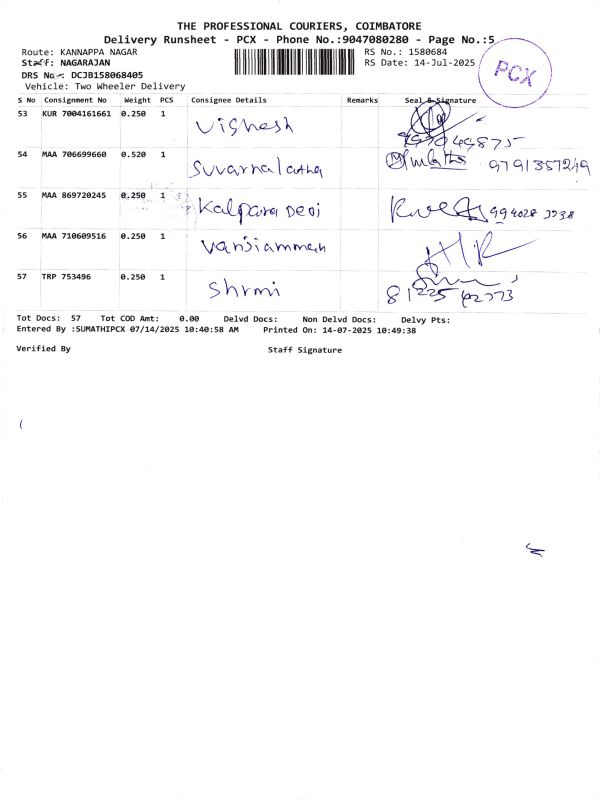 THE PROFESSIONAL COURIERS, COIMBATORE
Delivery Runsheet - PCX - Phone No.:9047080280 - Page No.:5
Route: KANNAPPA NAGAR RS No.: 1580684
Staff: NAGARAJAN RS Date: 14-Jul-2025
PCX
DRS No: DCJB158068405
Vehicle: Two Wheeler Delivery
S No Consignment No Weight PCS Consignee Details Remarks Seal & Signature
53 KUR 7004161661 0.250 1 Vighesh
54 MAA 706699660 0.520 1 Suvarnalatha 9791357249
55 MAA 869720245 0.250 1 Kalpana Devi
56 MAA 710609516 0.250 1 Vanjiamman
57 TRP 753496 0.250 1 Shrmi 81225 42773
Tot Docs: 57 Tot COD Amt: 0.00 Delvd Docs: Non Delvd Docs: Delvy Pts:
Entered By :SUMATHIPCX 07/14/2025 10:40:58 AM Printed On: 14-07-2025 10:49:38
Verified By Staff Signature